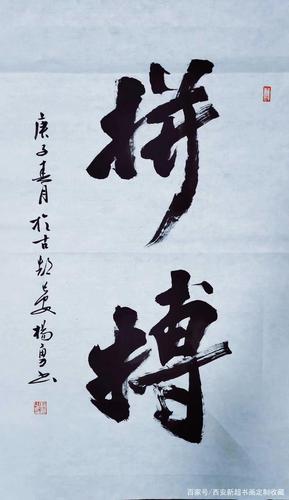 拼搏
庚子春月於古都长安杨勇书
百家号/西安新超书画定制收藏